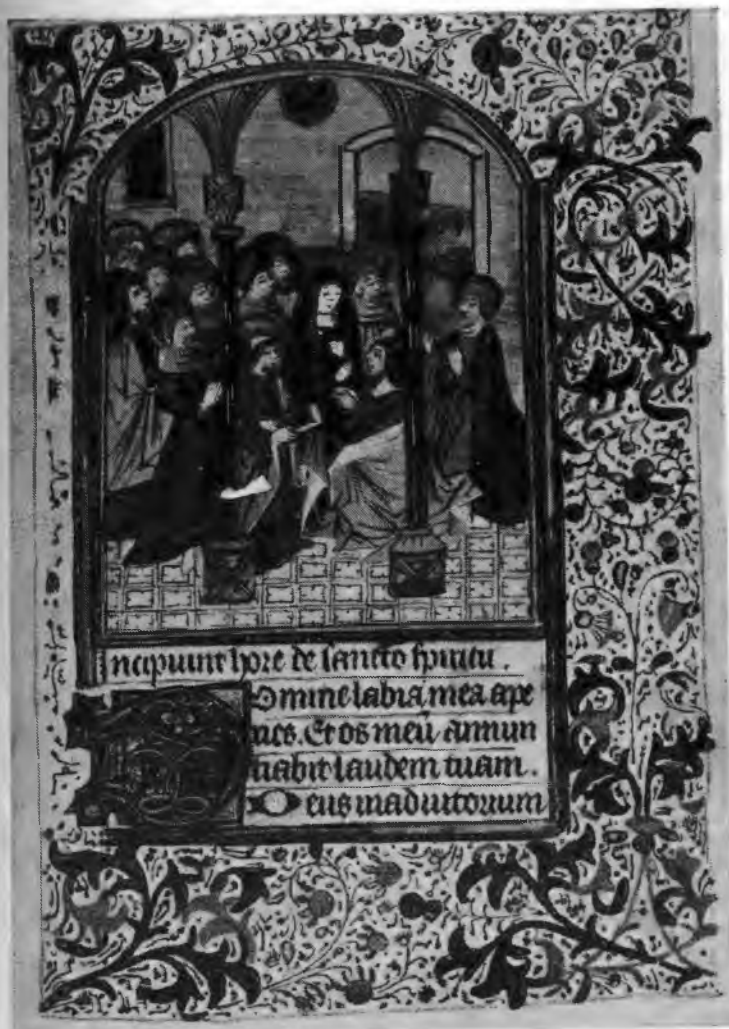 Incipiunt hore de sancto spiritu.
Domine labia mea ape
ries. Et os meū annun
tiabit laudem tuam.
Deus in adiutorium